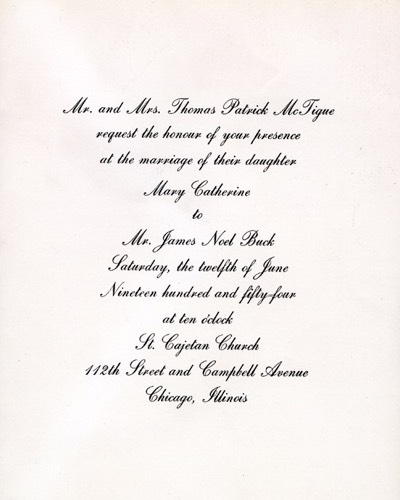 Mr. and Mrs. Thomas Patrick McTigue
request the honour of your presence
at the marriage of their daughter
Mary Catherine
to
Mr. James Noel Buck
Saturday, the twelfth of June
Nineteen hundred and fifty-four
at ten o'clock
St. Cajetan Church
112th Street and Campbell Avenue
Chicago, Illinois